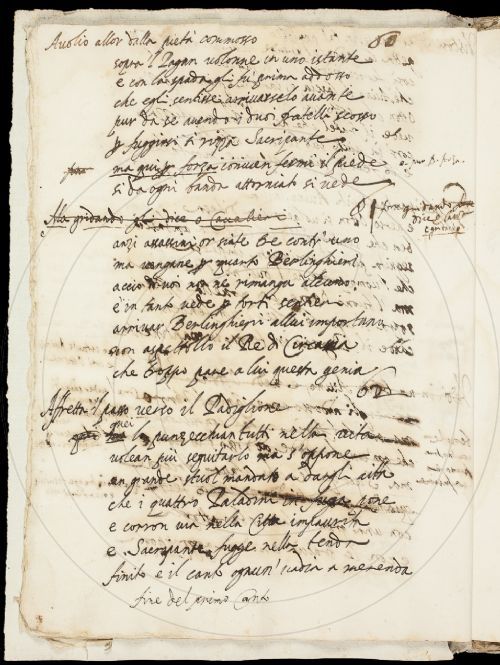 Avolio allor dalla pietà commosso 60
sopra 'l Pagan volonne in uno istante
e con la spada gli fu prima addosso
che egli sentisse arrivarselo avante
pur da se avendo i duoi fratelli scosso
p fuggirsi si rizza Sacripante
ma qui p forza convien fermi il piede
si da ogni banda attorniato si vede
Ma gridando dice o Cavalier 61
anzi assassini or siate tre contr' uno
ma vengane p quarto Berlinghieri
accio di voi non ne rimanga alcuno
e in tanto vede p forti sentieri
arrivar Berlinghieri
non aspettollo il Re di Circassia
che troppo pare a lui questa genia
Affretta il passo verso il Padiglione 62
quei
punzecchian tutti nella
volean più seguitarlo ma s'oppone
un grande stuol mandato a dargli aita
che i quattro Paladini in fuga pone
e corron via nella Città
e Sacripante fugge nella tenda
finito è il canto ognun' vada a merenda
fine del primo Canto